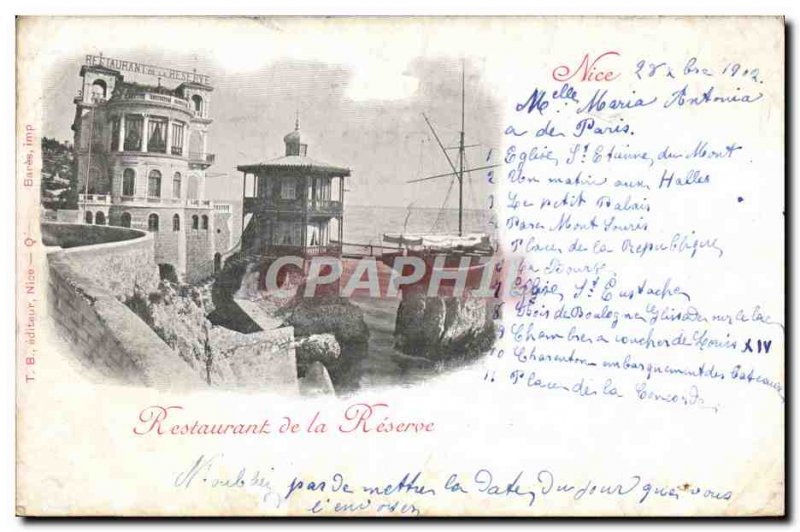 RESTAURANT DE LA RESERVE
T. B., éditeur, Nice. — Barés, imp
Nice 1902
Melle Maria Antonia
a de Paris.
1 Eglise, St Etienne, du Mont
2 Un matin aux Halles
3 Le petit Palais
4 Parc Mont Souris
5 Place de la République
6 La Bourse
7 Eglise, St Eustache
8 Bois de Boulogne Glissades sur le lac
9 Chambre a coucher de Louis XIV
10 Charenton embarquement des bateaux
11 Place de la Concorde
CPARAMA
Restaurant de la Réserve
N'oubliez pas de mettre la date, du jour que vous
l'envoyer